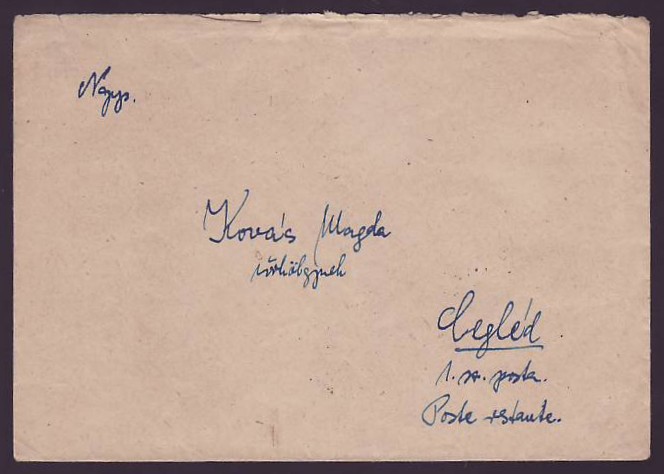 Nagys.
Kovás Magda
úrhölgynek
Cegléd
1. sz. posta.
Poste restante.